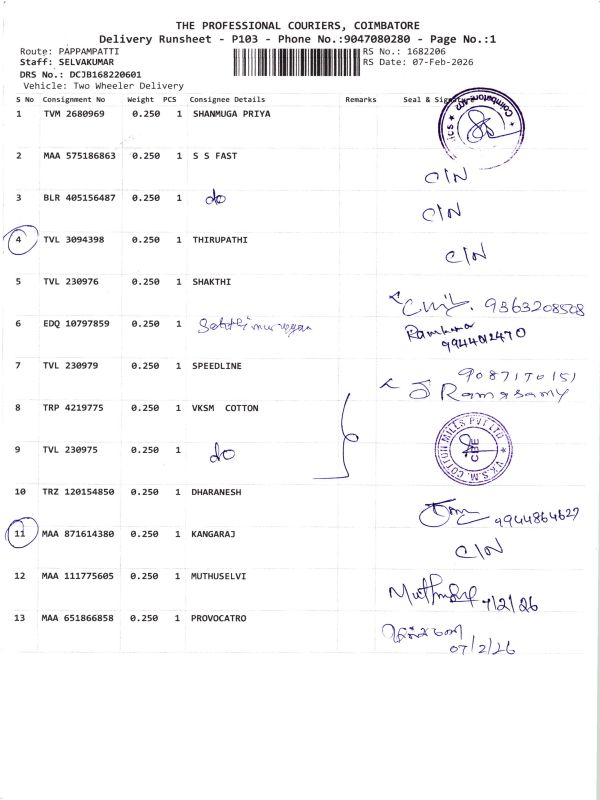 THE PROFESSIONAL COURIERS, COIMBATORE
Delivery Runsheet - P103 - Phone No.:9047080280 - Page No.:1
Route: PAPPAMPATTI
RS No.: 1682206
Staff: SELVAKUMAR
RS Date: 07-Feb-2026
DRS No.: DCJB168220601
Vehicle: Two Wheeler Delivery
S No Consignment No Weight PCS Consignee Details Remarks Seal &
1 TVM 2680969 0.250 1 SHANMUGA PRIYA
2 MAA 575186863 0.250 1 S S FAST C/N
3 BLR 405156487 0.250 1 do C/N
4 TVL 3094398 0.250 1 THIRUPATHI C/N
5 TVL 230976 0.250 1 SHAKTHI 9363208508
6 EDQ 10797859 0.250 1 9944012470
7 TVL 230979 0.250 1 SPEEDLINE 9087170151
Ramasamy
8 TRP 4219775 0.250 1 VKSM COTTON
V.K.S.M. COTTON MILLS PVT LTD
CBE
9 TVL 230975 0.250 1 do
10 TRZ 120154850 0.250 1 DHARANESH 9944864627
11 MAA 871614380 0.250 1 KANGARAJ C/N
12 MAA 111775605 0.250 1 MUTHUSELVI 7/2/26
13 MAA 651866858 0.250 1 PROVOCATRO
07/2/26